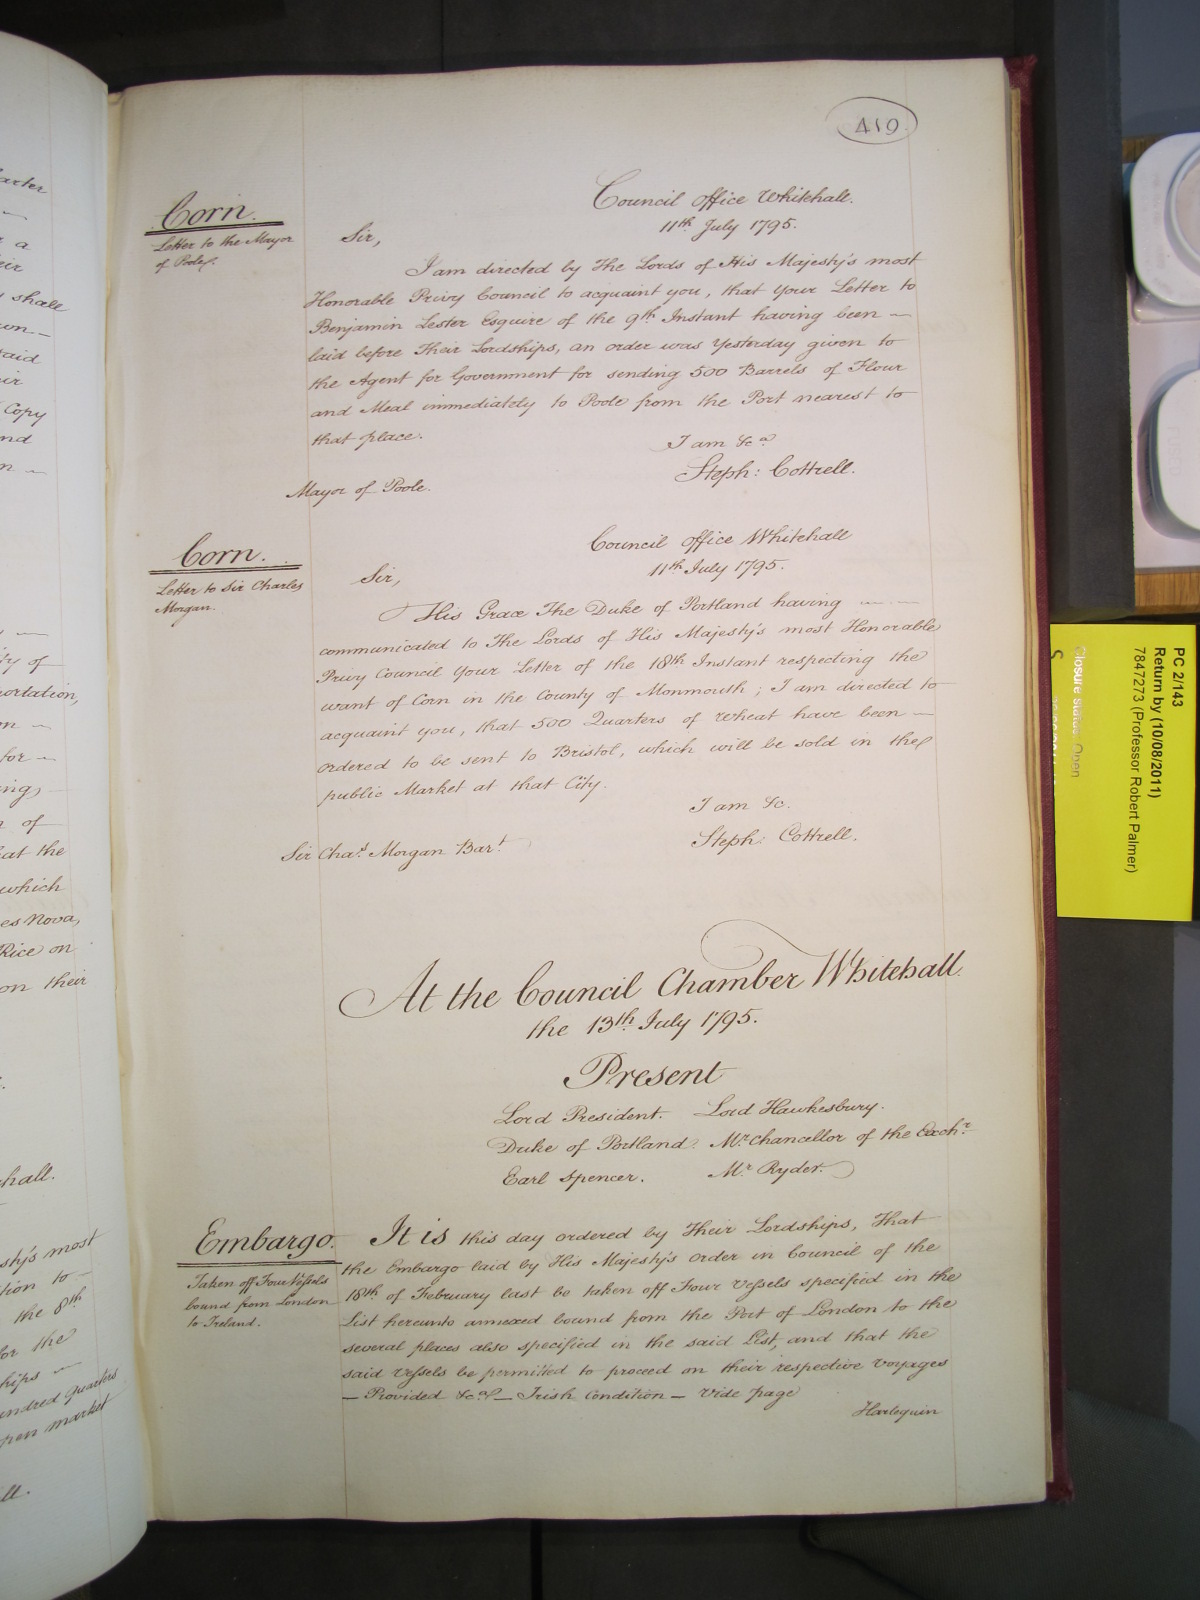 419
Corn.
Letter to the Mayor
of Poole.
Council office Whitehall.
11th July 1795.
Sir,
I am directed by The Lords of His Majesty's most
Honorable Privy Council to acquaint you, that your Letter to
Benjamin Lester Esquire of the 9th Instant having been
laid before Their Lordships, an order was Yesterday given to
the Agent for Government for sending 500 Barrels of Flour
and Meal immediately to Poole from the Port nearest to
that place.
I am &ca
Steph: Cottrell.
Mayor of Poole.
Corn.
Letter to Sir Charles
Morgan.
Council office Whitehall
11th July 1795.
Sir,
His Grace The Duke of Portland having
communicated to The Lords of His Majesty's most Honorable
Privy Council Your Letter of the 18th Instant respecting the
want of Corn in the County of Monmouth; I am directed to
acquaint you, that 500 Quarters of Wheat have been
ordered to be sent to Bristol, which will be sold in the
public Market at that City.
I am &c.
Steph: Cottrell.
Sir Chas. Morgan Bart
At the Council Chamber Whitehall.
the 13th July 1795.
Present
Lord President. Lord Hawkesbury.
Duke of Portland. Mr Chancellor of the Exchr
Earl Spencer. Mr Ryder.
Embargo.
Taken off Four Vessels
bound from London
to Ireland.
It is this day ordered by Their Lordships, That
the Embargo laid by His Majesty's order in Council of the
18th of February last be taken off Four Vessels specified in the
List hereunto annexed bound from the Port of London to the
several places also specified in the said List, and that the
said Vessels be permitted to proceed on their respective voyages
— Provided &ca — Irish Condition — vide page
Harlequin
PC 2/143
Return by (10/08/2011)
7847273 (Professor Robert Palmer)
Closure status: Open
shall
said
Copy
at the
which
Rice on
on their
hall.
sty's most
the 8th
for the
Quarters
market